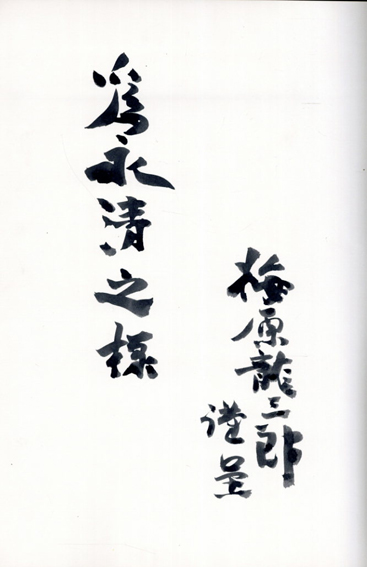 梅原龍三郎
謹呈
爲永清之様